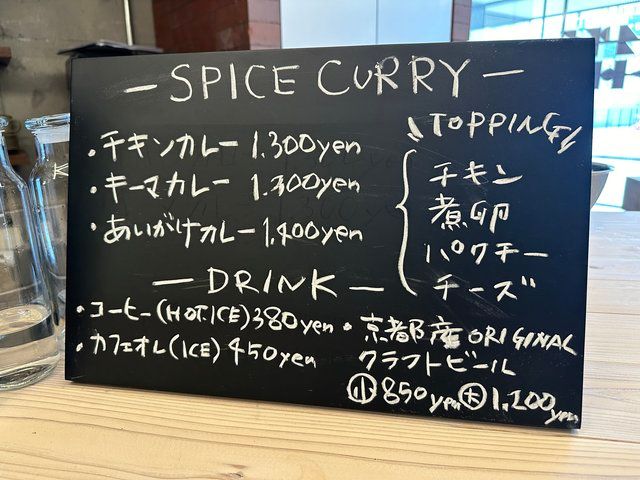 — SPICE CURRY —
・チキンカレー 1.300yen
・キーマカレー 1.300yen
・あいがけカレー 1.400yen
\TOPPING/
チキン
煮卵
パクチー
チーズ
— DRINK —
・コーヒー(HOT.ICE)380yen
・カフェオレ(ICE)450yen
・京都産ORIGINAL
クラフトビール
小850yen 大1.100yen